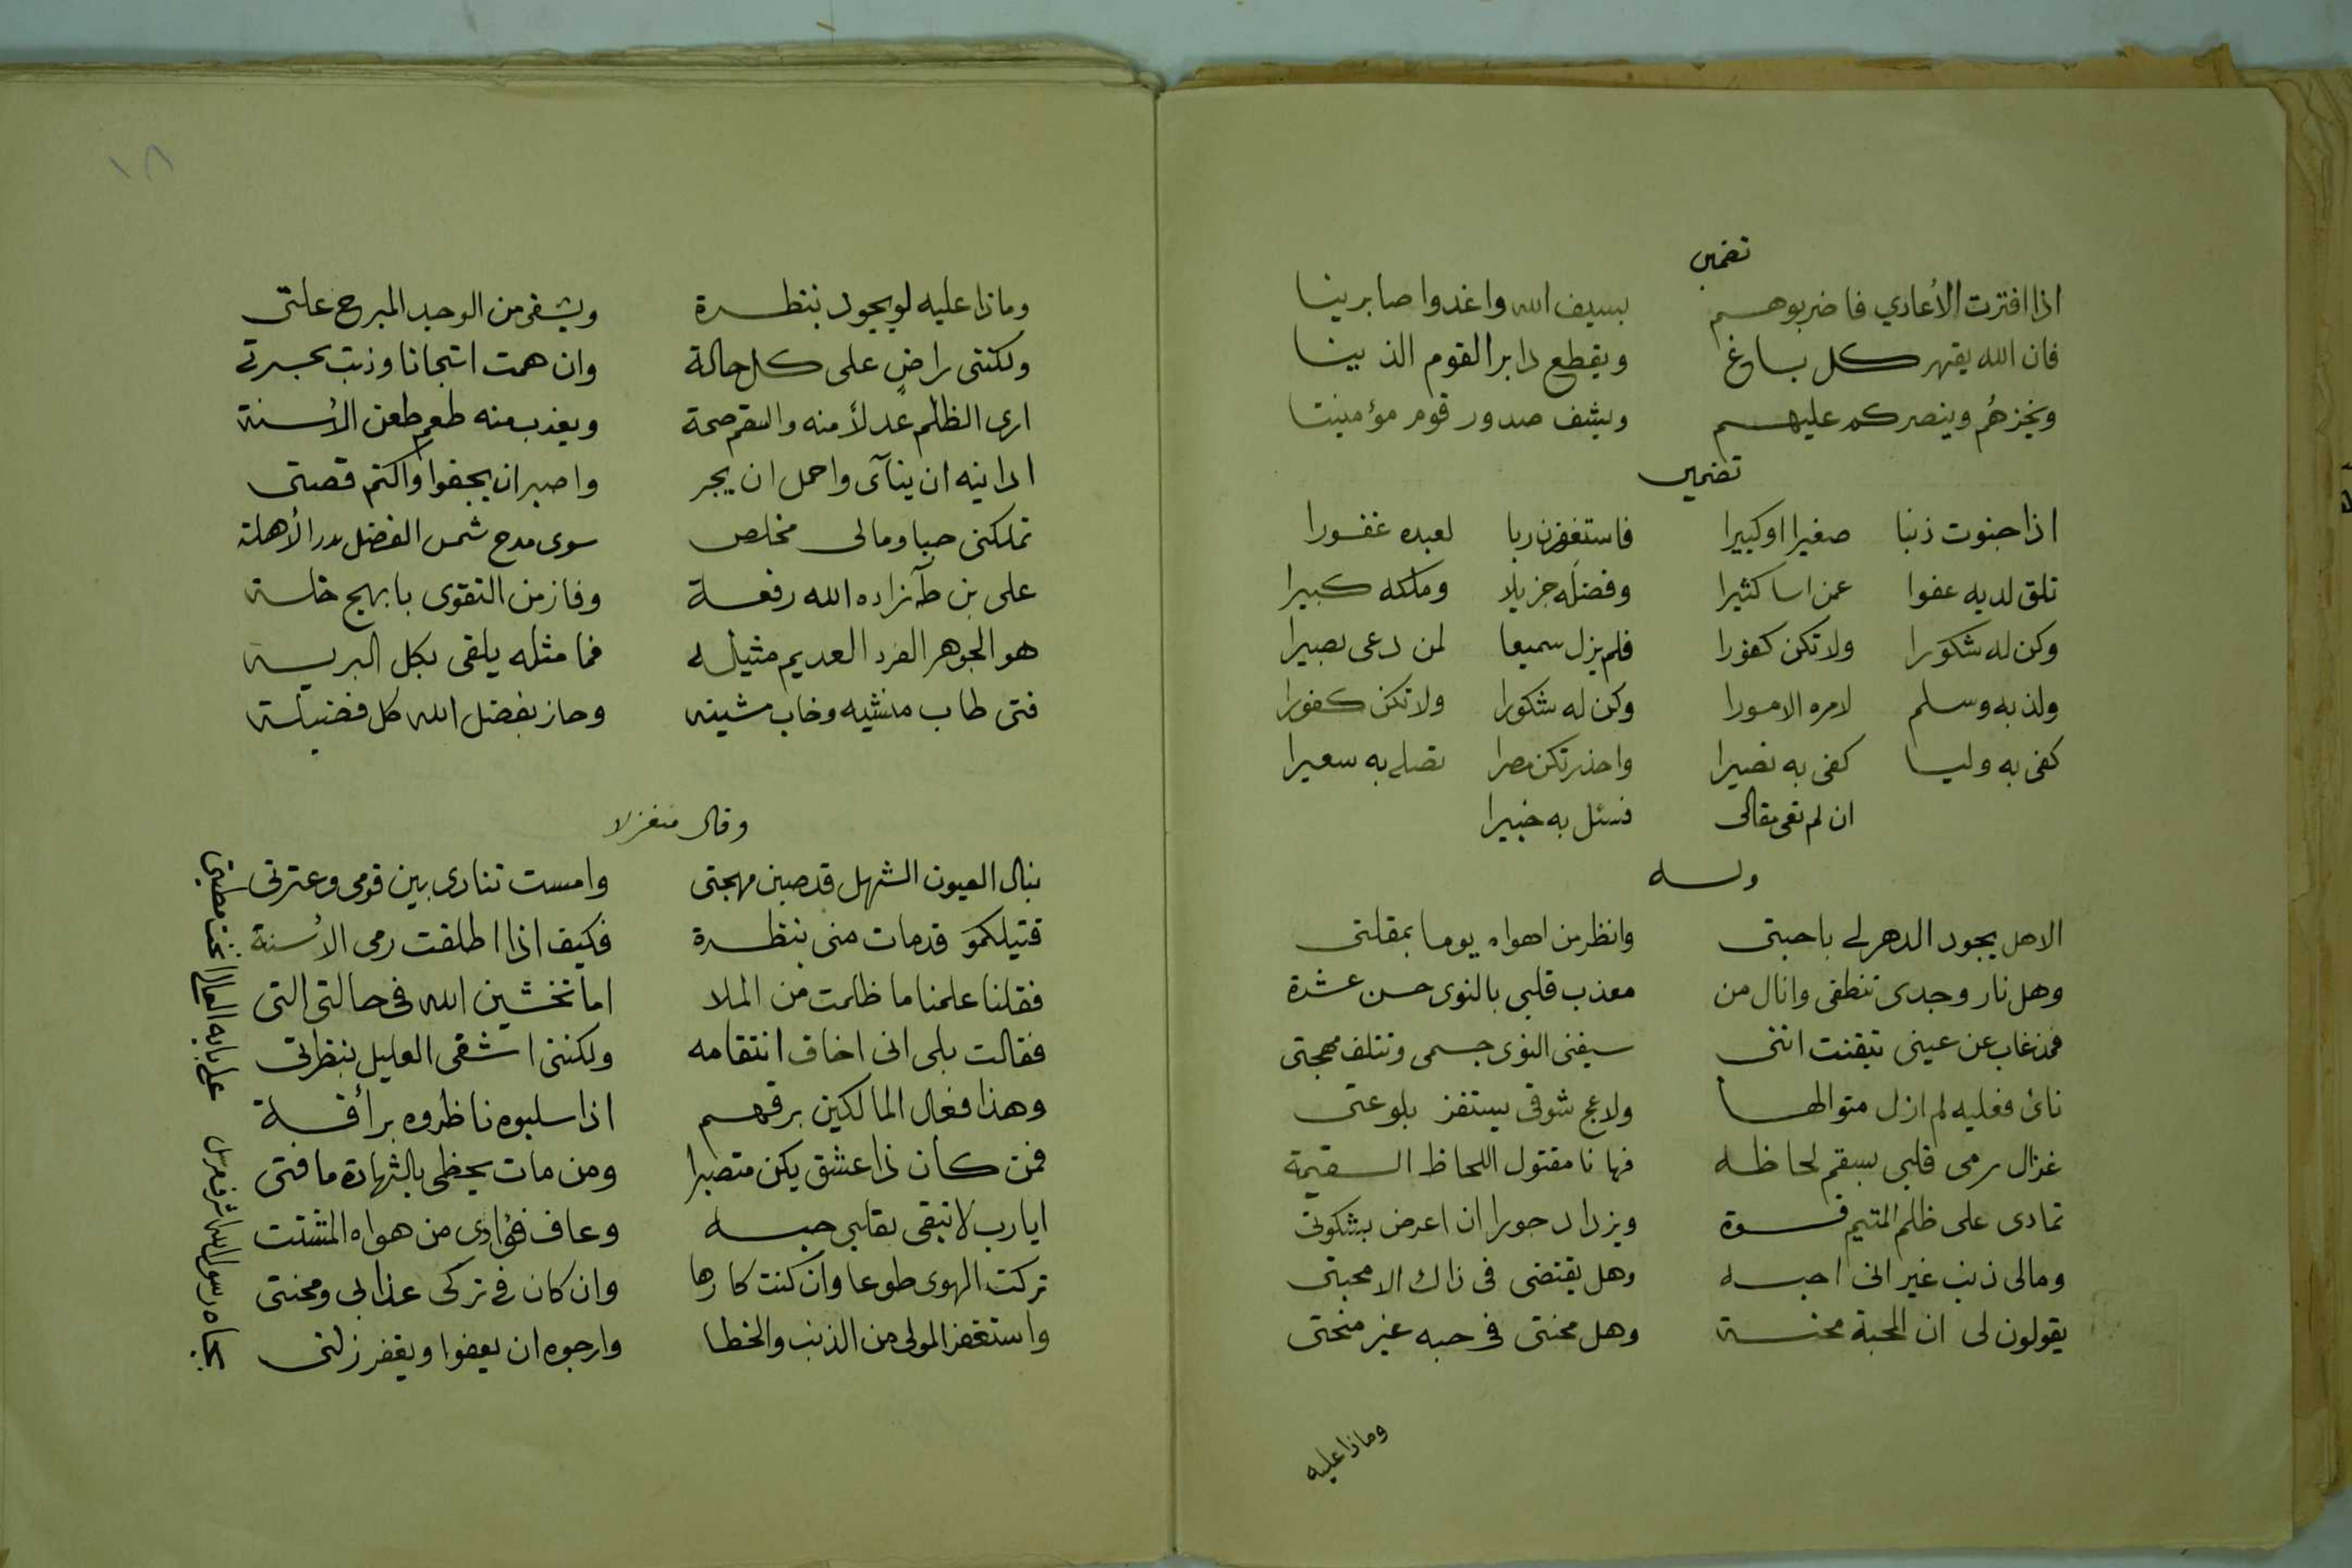 تضمين
اذا افترت الأعادي فاضربوهم بسيف الله واغدوا صابرينا
فان الله يقهر كل باغ ويقطع دابر القوم الذينا
ويخزهُم وينصركم عليهم ويشف صدور قوم مؤمنينا
تضمين
اذا جنوت ذنبا صغيرا او كبيرا فاستغفرن ربا لعبده غفورا
تلق لديه عفوا عمن اسا كثيرا وفضلَه جزيلا وملكه كبيرا
وكن له شكورا ولا تكن كفورا فلم يزل سميعا لمن دعى بصيرا
ولذ به وسلم لامره الامورا وكن له شكورا ولا تكن كفورا
كفى به وليا كفى به نصيرا واحذر تكن مصرا تصلى به سعيرا
ان لم تعى مقالى فسئل به خبيرا
وله
الا هل يجود الدهر لى باحبتى وانظر من اهواه يوما بمقلتى
وهل نار وجدى تنطفى وانال من معذب قلبى بالنوى حسن عشرة
فمذ غاب عن عينى تيقنت اننى سيفنى النوى جسمى وتتلف مهجتى
نائ فعليه لم ازل متوالها ولاعج شوقى يستفز بلوعتى
غزال رمى قلبى بسقم لحاظه فها نا مقتول اللحاظ السقيمة
تمادى على ظلم المتيم قسوة ويزداد جورا ان اعرض بشكوتى
ومالى ذنب غير انى احبه وهل يقتضى فى ذاك الا محبتى
يقولون لى ان المحبة محنة وهل محنتى فى حبه غير منحتى
وماذا عليه
١٨
وماذا عليه لو يجود بنظرة ويشفى من الوجد المبرح علتى
ولكننى راضٍ على كل حالة وان همت اشجانا وذبت بحسرتى
ارى الظلم عدلاً منه والسقم صحة ويعذب منه طعم طعن الأسنة
ادانيه ان ينآى واحمل ان يجر واصبر ان يجفوا واكتم قصتى
تملكنى حبا ومالى مخلص سوى مدح شمس الفضل بدر الأهلة
على بن طه زاده الله رفعة وفاز من التقوى بابهج خلة
هو الجوهر الفرد العديم مثيله فما مثله يلقى بكل البرية
فتى طاب منشيه وخاب مشينه وحاز بفضل الله كل فضيلة
وقال متغزلا
بنال العيون الشهل قد صبن مهجتى وامست تنادى بين قومى وعترتى
قتيلكمَو قد مات منى بنظرة فكيف اذا اطلقت رمى الأسنة
فقلنا علمنا ما ظلمت من الملا اما تخشين الله فى حالتى التى
فقالت بلى انى اخاف انتقامه ولكننى اشفى العليل بنظرتى
وهذا فعال المالكين برقهم اذا سلبوه ناظروه برأفة
فمن كان ذا عشق يكن متصبرا ومن مات يحظى بالشهادة ما فتى
ايا رب لا تبقى بقلبى حبه وعاف فؤادى من هواه المشتت
تركت الهوى طوعا وان كنت كارها وان كان فى تركى عذابى ومحنتى
واستغفر المولى من الذنب والخطا وارجوه ان يعفوا ويغفر زلتى
بجاه رسول الله اشرف مرسل على بابه العالى انخت مطيتى